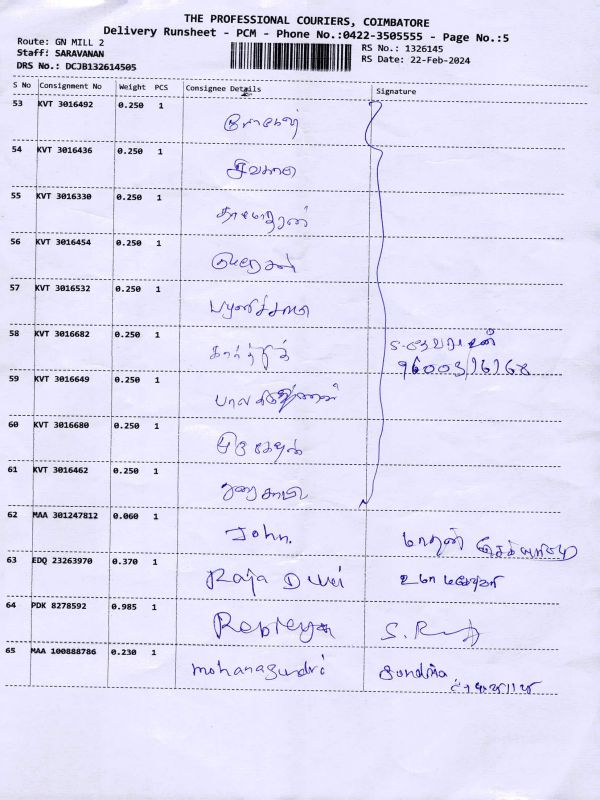 THE PROFESSIONAL COURIERS, COIMBATORE
Delivery Runsheet - PCM - Phone No.:0422-3505555 - Page No.:5
Route: GN MILL 2
Staff: SARAVANAN
DRS No.: DCJB132614505
RS No.: 1326145
RS Date: 22-Feb-2024
S No Consignment No Weight PCS Consignee Details Signature
53 KVT 3016492 0.250 1
54 KVT 3016436 0.250 1
சிவகாமி
55 KVT 3016330 0.250 1
தாமோதரன்
56 KVT 3016454 0.250 1
முருகேசன்
57 KVT 3016532 0.250 1
பழனிச்சாமி
58 KVT 3016682 0.250 1
கார்த்திக்
59 KVT 3016649 0.250 1
பாலகிருஷ்ணன்
60 KVT 3016680 0.250 1
61 KVT 3016462 0.250 1
துரைசாமி
62 MAA 301247812 0.060 1
John.
63 EDQ 23263970 0.370 1
Raja
64 PDK 8278592 0.985 1
65 MAA 100888786 0.230 1
mohanasundri